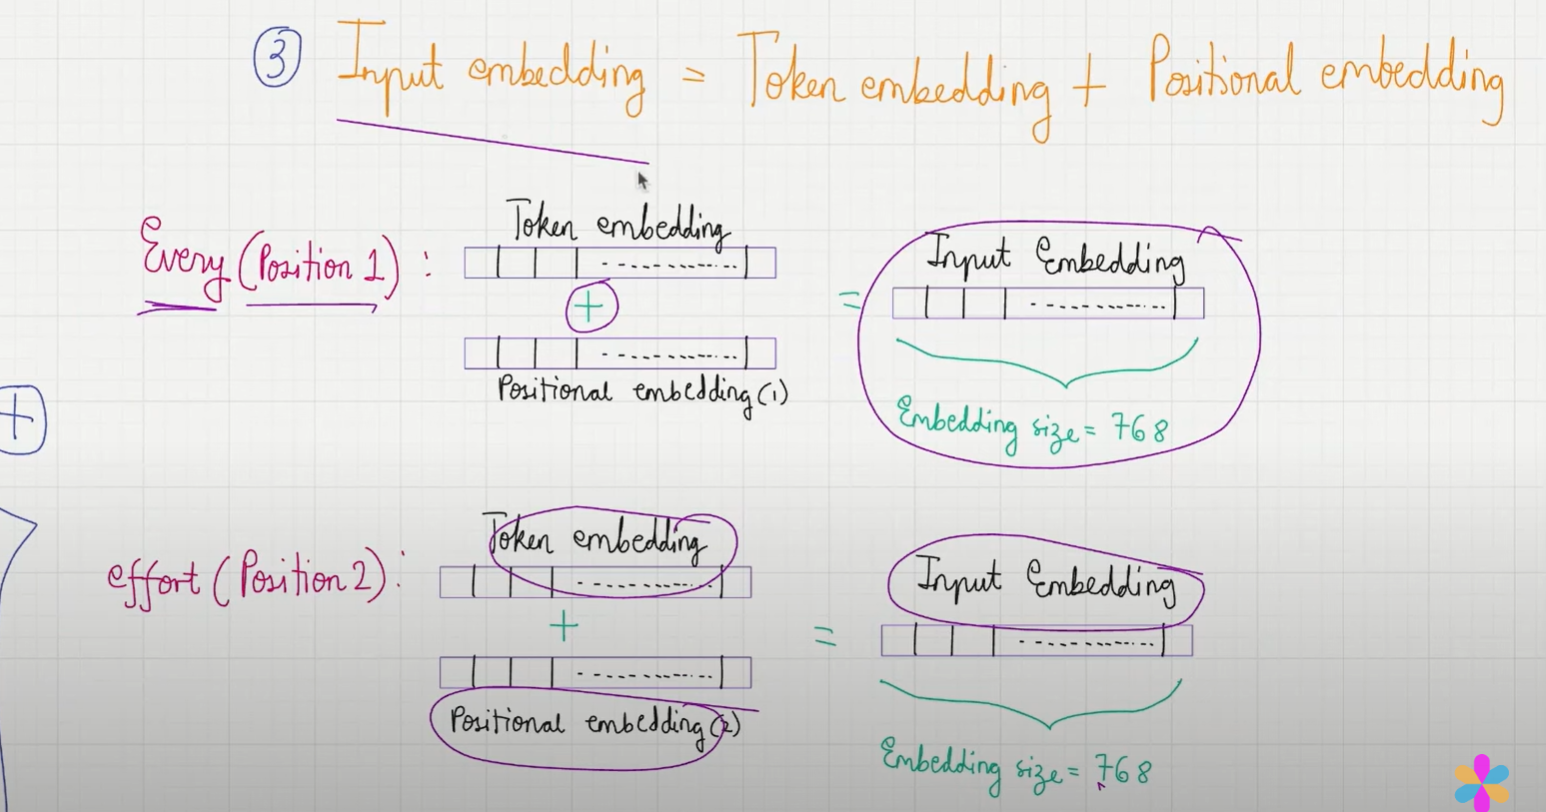 ③ Input embedding = Token embedding + Positional embedding
Every (Position 1) :
Token embedding
+
Positional embedding (1)
=
Input Embedding
Embedding size = 768
+
effort (Position 2) :
Token embedding
+
Positional embedding (2)
=
Input Embedding
Embedding size = 768